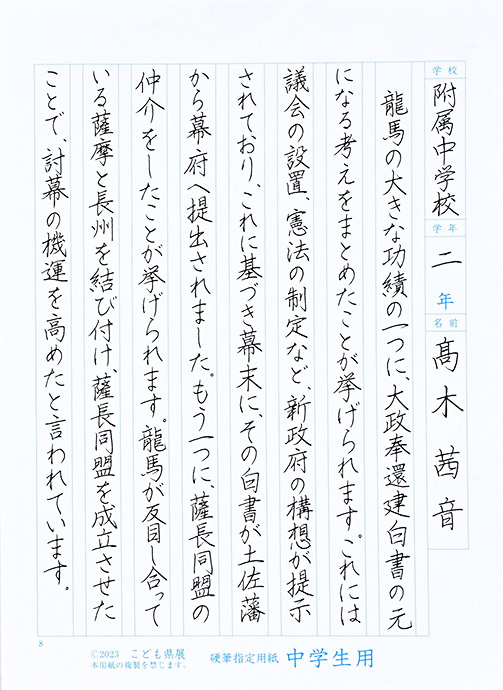 学校
附属中学校
学年
二
年
名前
髙木茜音
龍馬の大きな功績の一つに、大政奉還建白書の元
になる考えをまとめたことが挙げられます。これには
議会の設置、憲法の制定など、新政府の構想が提示
されており、これに基づき幕末に、その白書が土佐藩
から幕府へ提出されました。もう一つに、薩長同盟の
仲介をしたことが挙げられます。龍馬が反目し合って
いる薩摩と長州を結び付け、薩長同盟を成立させた
ことで、討幕の機運を高めたと言われています。
8
©2023 こども県展
本用紙の複製を禁じます。
硬筆指定用紙 中学生用